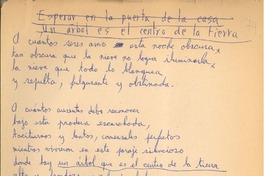 Esperar en la puerta de la casa
Un árbol es el centro de la tierra
A cuántos seres amo esta noche obscura,
tan obscura que la nieve no logra iluminarla,
la nieve que todo lo blanquea
y sepulta, fulgurante y obstinada.
A cuántos ausentes debo reconocer
bajo esta pradera escarchada,
taciturnos y lentos, comensales perfectos
mientras vivieron en este paraje silencioso
donde hay un árbol que es el centro de la tierra